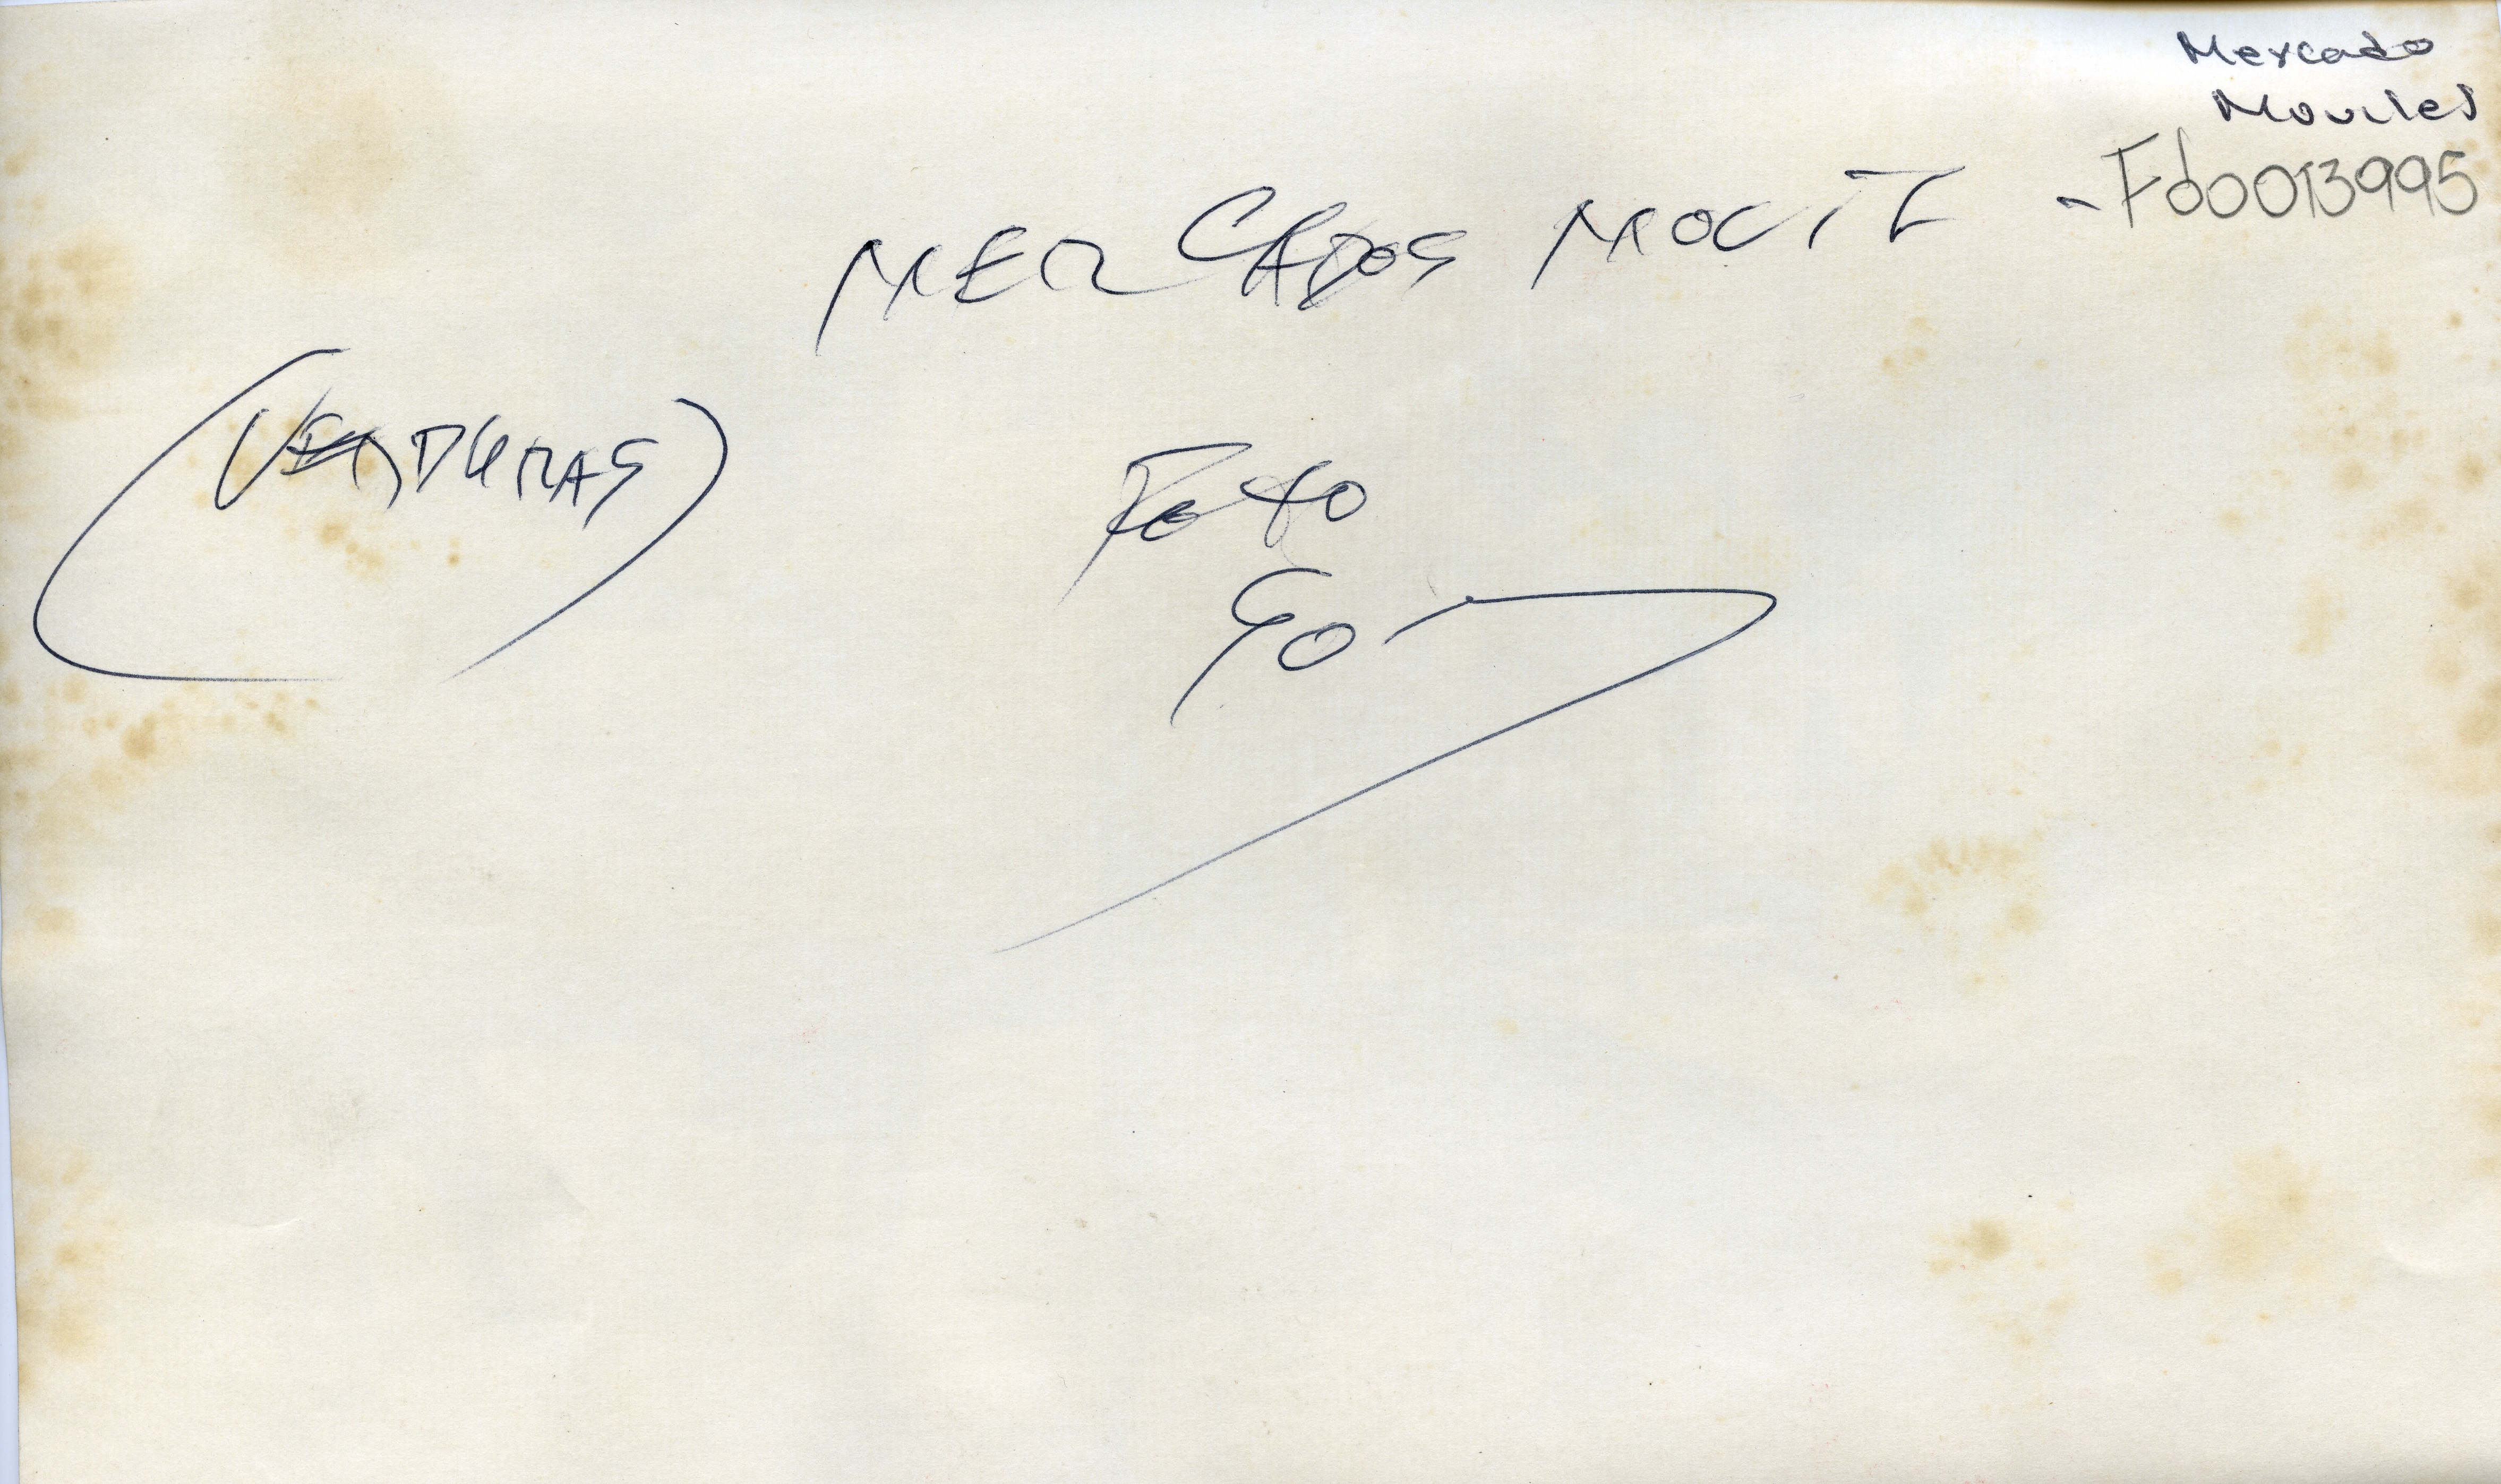 Mercado
Moviles
Fd0013995
MERCADOS
(VERDURAS)
Foto